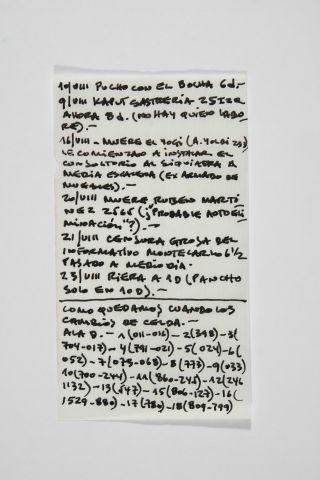 10/VIII PUCHO CON EL BOCHA 6d.-
9/VIII KAPUT SASTRERIA 25 IZR
AHORA Bd. (NO HAY QUIEN LABO
RE).-
16/VIII - MUERE EL YOGI (A. YOLDI 293)
LE COMIENZAN A INSTALAR EL
CONSULTORIO AL SIQUIATRA A
MEDIA ESCALERA (EX ARMADO DE
MUEBLES).-
20/VIII MUERE RUBEN MARTI
NEZ 2565 (¡"PROBABLE AUTOELI
MINACIÓN"?).-
21/VIII CENSURA GROSA DEL
INFORMATIVO MONTECARLO 6 1/2
PASADO A MEDIO DIA.-
23/VIII RIERA A 1D (PANCHO
SOLO EN 10 D).-
COMO QUEDAMOS CUANDO LOS
CAMBIOS DE CELDA.-
ALA D.- 1(011-016)-2(398)-3(
704-017)-4(791-021)-5(024)-6(
052)-7(075-068)-8(773)-9(033)
10(700-244)-11(860-245)-12(246
1132)-13(547)-15(806-127)-16(
1529-880)-17(780)-18(809-799)